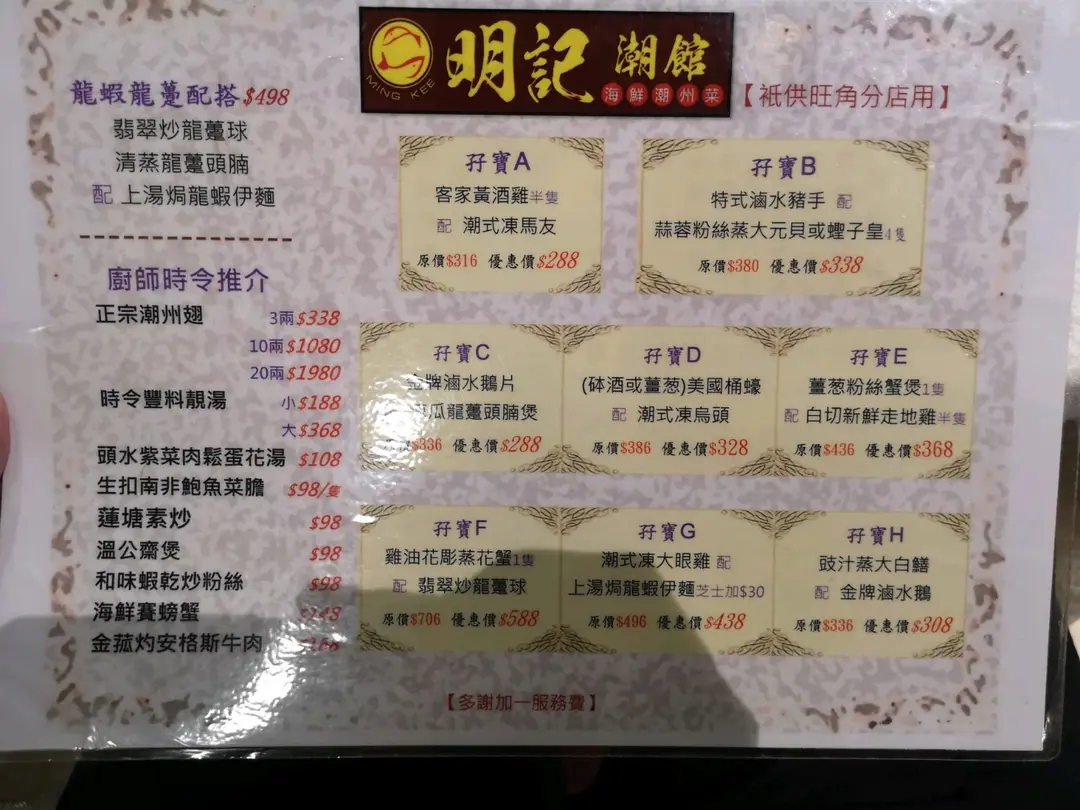 明記 潮館
海鮮潮州菜
MING KEE
【祇供旺角分店用】
龍蝦龍躉配搭 $498
翡翠炒龍躉球
清蒸龍躉頭腩
配 上湯焗龍蝦伊麵
廚師時令推介
正宗潮州翅 3兩 $338
10兩 $1080
20兩 $1980
時令豐料靚湯 小 $188
大 $368
頭水紫菜肉鬆蛋花湯 $108
生扣南非鮑魚菜膽 $98/隻
蓮塘素炒 $98
溫公齋煲 $98
和味蝦乾炒粉絲 $98
海鮮賽螃蟹
金菰灼安格斯牛肉
孖寶A
客家黃酒雞半隻
配 潮式凍馬友
原價$316 優惠價$288
孖寶B
特式滷水豬手 配
蒜蓉粉絲蒸大元貝或蟶子皇4隻
原價$380 優惠價$338
孖寶C
金牌滷水鵝片
瓜龍躉頭腩煲
原價$336 優惠價$288
孖寶D
(砵酒或薑葱)美國桶蠔
配 潮式凍烏頭
原價$386 優惠價$328
孖寶E
薑葱粉絲蟹煲1隻
配 白切新鮮走地雞半隻
原價$436 優惠價$368
孖寶F
雞油花彫蒸花蟹1隻
配 翡翠炒龍躉球
原價$706 優惠價$588
孖寶G
潮式凍大眼雞 配
上湯焗龍蝦伊麵芝士加$30
原價$496 優惠價$438
孖寶H
豉汁蒸大白鱔
配 金牌滷水鵝
原價$336 優惠價$308
【多謝加一服務費】